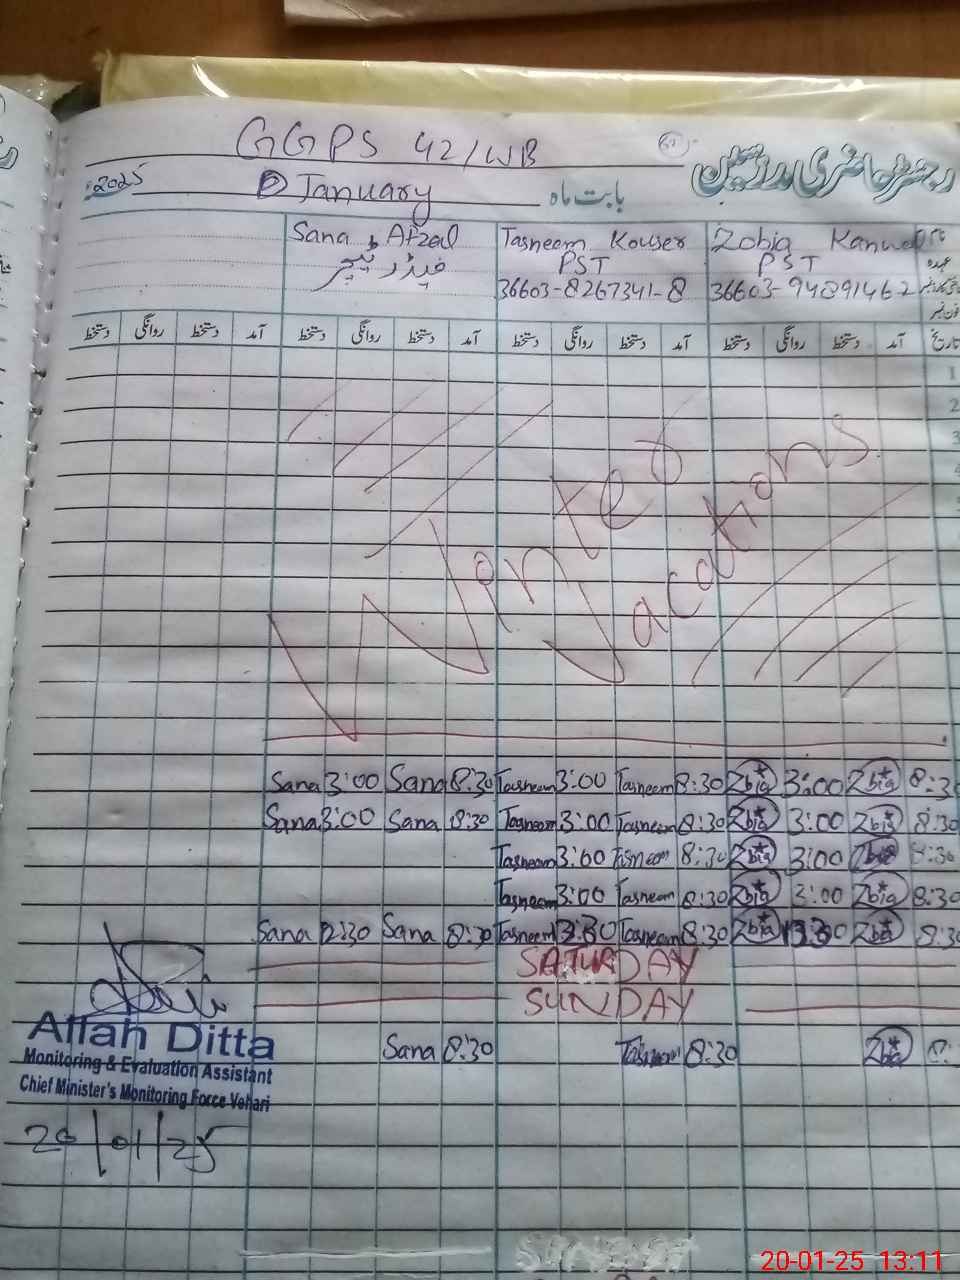 GGPS 42/WB
رجسٹر حاضری مدرسین
2025 January بابت ماہ
Sana Afzal Tasneem Kouser Zobia Kanwal
فیڈر ٹیچر PST PST عہدہ
36603-8267341-8 36603-94891462
دستخط روانگی دستخط آمد دستخط روانگی دستخط آمد دستخط روانگی دستخط آمد دستخط روانگی دستخط آمد تاریخ
1
2
3
4
Winter
Vacations
Sana 3:00 Sana 8:30 Tasneem 3:00 Tasneem 8:30 Zbia 3:00 Zbia 8:30
Sana 3:00 Sana 8:30 Tasneem 3:00 Tasneem 8:30 Zbia 3:00 Zbia 8:30
Tasneem 3:00 Tasneem 8:30 Zbia 3:00 Zbia 8:30
Tasneem 3:00 Tasneem 8:30 Zbia 3:00 Zbia 8:30
Sana 12:30 Sana 8:30 Tasneem Tasneem 8:30 Zbia Zbia 8:30
SATURDAY
SUNDAY
Sana 8:30 Tasneem 8:30 Zbia
Allah Ditta
Monitoring & Evaluation Assistant
Chief Minister's Monitoring Force Vehari
20/01/25
SUNDAY
20-01-25 13:11